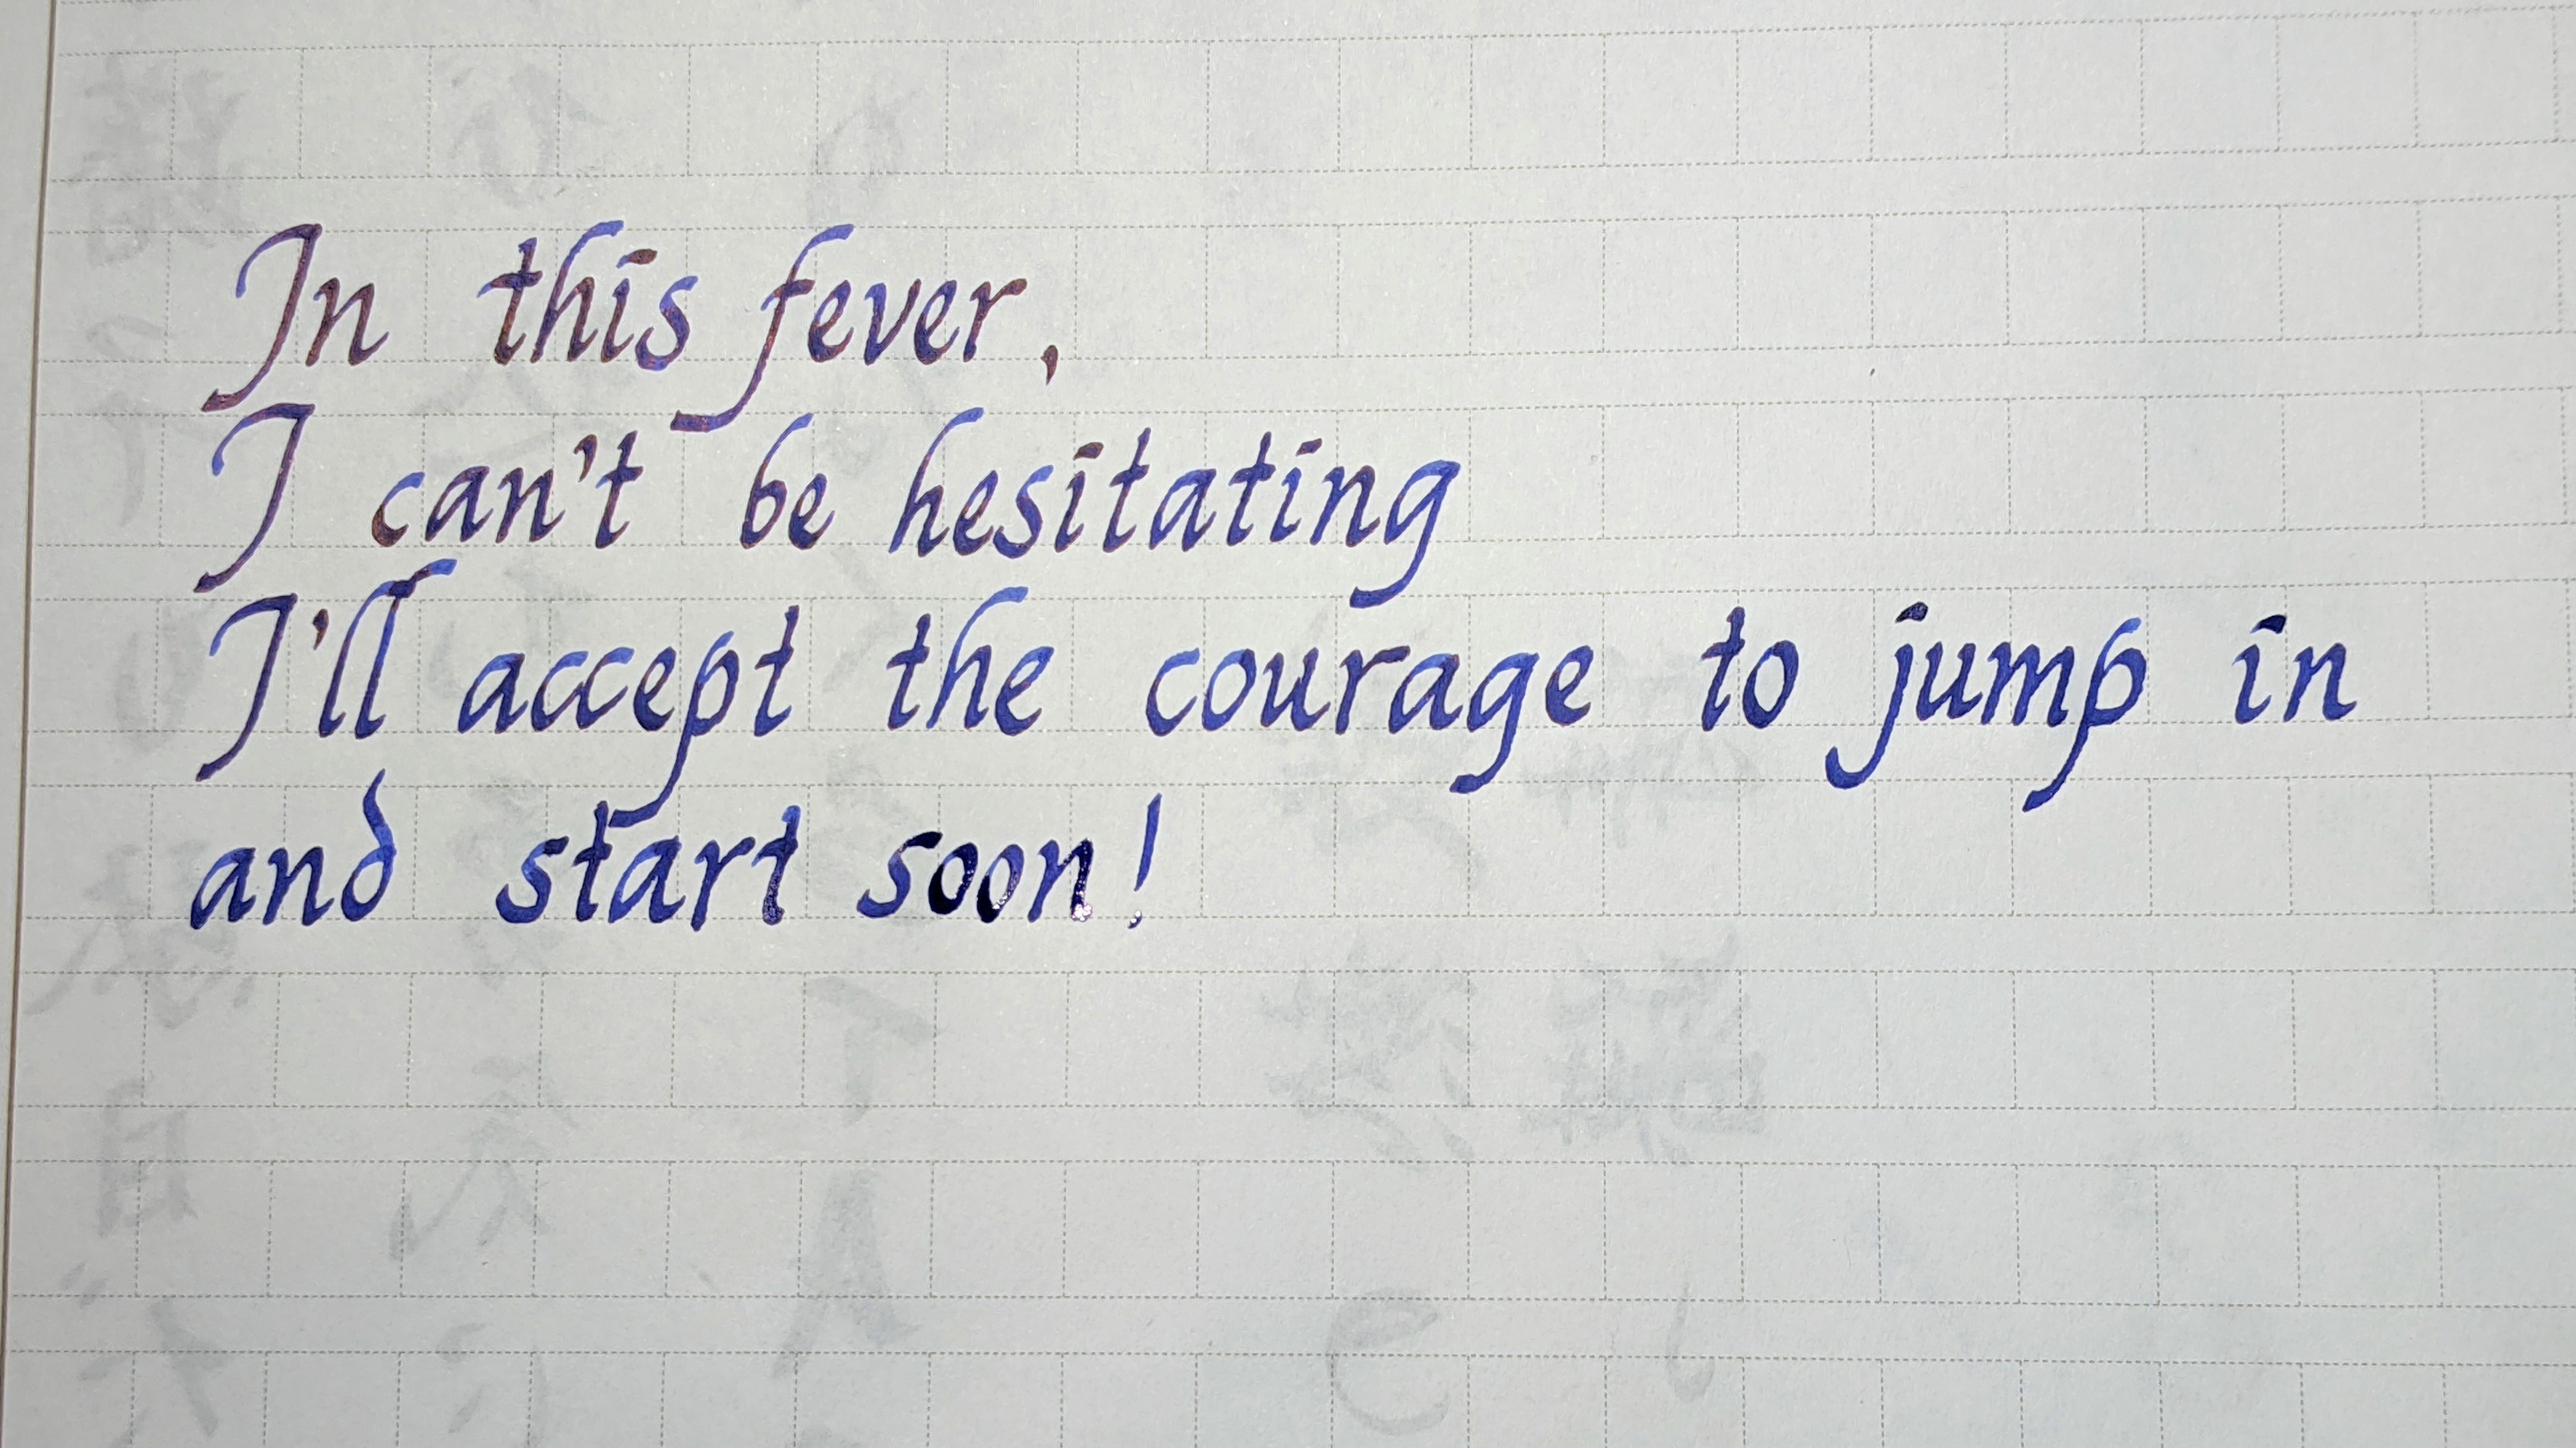 In this fever,
I can't be hesitating
I'll accept the courage to jump in
and start soon!